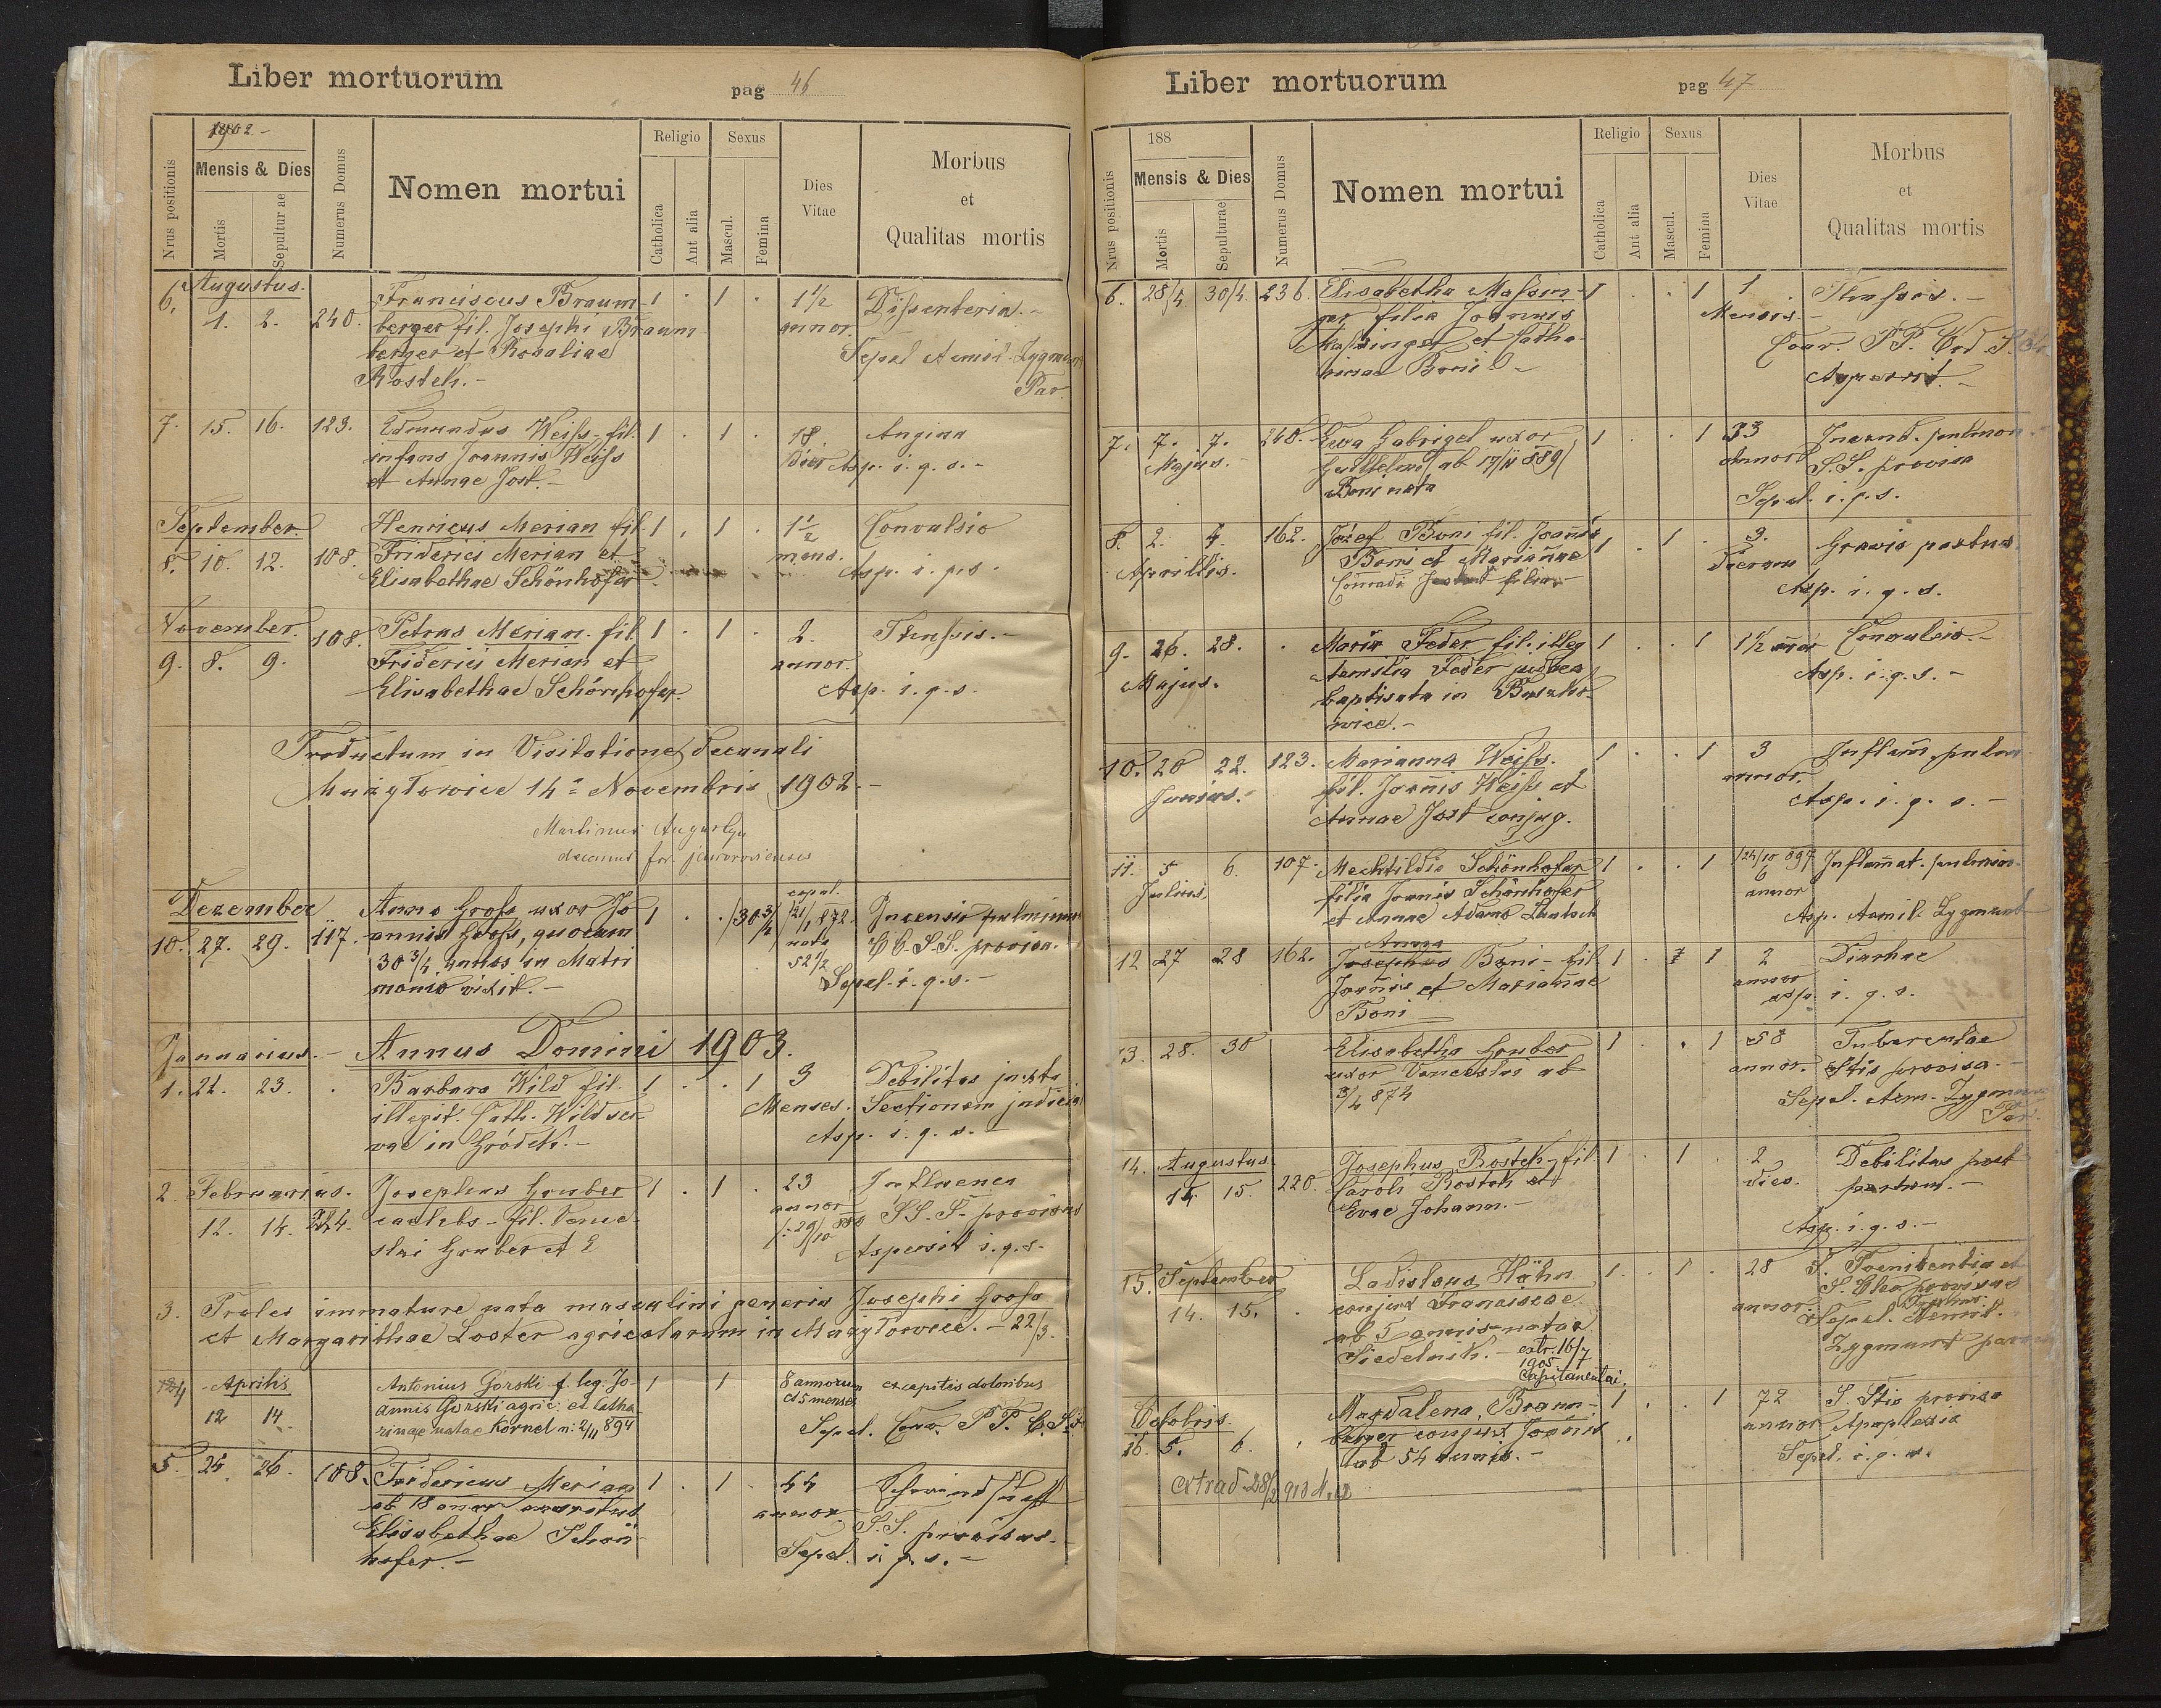 Liber mortuorum
pag 46
1902
Nrus positionis
Mensis & Dies
Mortis
Sepulturae
Numerus Domus
Nomen mortui
Religio
Catholica
Aut alia
Sexus
Mascul.
Femina
Dies
Vitae
Morbus
et
Qualitas mortis
Augustus.
6. 1. 2. 240. Franciscus Braum- 1 . 1 . 1 1/2 Dissenteria.-
berger fil. Josephi Braum- annor.
berger et Rosaliae Sepel Zygmunt
Rosteh.- Par.
7. 15. 16. 123. Edmundus Weiss, fil. 1 . 1 . 18. Angina
infans Joannis Weiss Dies Asp. i. q. s.-
et Annae Jost.-
September.
8. 10. 12. 108. Henricus Merian fil. 1 . 1 . 1 1/2 Convulsio
Friderici Merian et mens. Asp. i. q. s.
Elisabethae Schönhofer
November.
9. 8. 9. 108. Petrus Merian fil. 1 . 1 . 2. Thussis.-
Friderici Merian et annor.
Elisabethae Schönhofer. Asp. i. q. s.
Productum in Visitatione decanali
Mużyłowice 14 Novembris 1902.-
Martinus
decanus for.
Dezember
10. 27. 29. 117. Anna Gross uxor Jo- 1 . . 30 3/4 copul. 21/1 872. Incensio pulminum
annis Gross, quocum nata S.S. provisa.
30 3/4 annos in Matri 52 1/2
monio vixit.- Sepel. i. q. s.-
Januarius.- Annus Domini 1903.
1. 21. 23. . Barbara Wild fil. 1 . . 1 3 Debilitas juxta
illegit. Cath. Wild ser- Menses. Sectionem judicia
vae in Gródek.- Asp. i. q. s.-
2. Februarius. Josephus Gruber 1 . 1 . 23 Influenca
12. 14. 224. caelebs - fil. Vence- annor S.S. S. provisus
slai Gruber et E 29/10 880 Aspersit i. q. s.
3. Proles immature nata masculini generis Josephi Gross
et Margarithae Loster agricolarum in Mużyłowice.- 22/3.
4 Aprilis Antonius Gorski f. leg. Jo- 1 1 8 annorum ex capitis doloribus
12 14 annis Gorski agric: et Catha- et 5 menses
rinae natae Kornel n: 2/11 894 Sepel. Coor. P. P.
5. 24. 26. 108. Fridericus Merian 1 . 1 . 44 Schwindsucht
ab 18 annor maritus annor. S.S. provisus.-
Elisabethae Schön- Sepel. i. q. s.-
hofer.-
Liber mortuorum
pag 47
188
Nrus positionis
Mensis & Dies
Mortis
Sepulturae
Numerus Domus
Nomen mortui
Religio
Catholica
Aut alia
Sexus
Mascul.
Femina
Dies
Vitae
Morbus
et
Qualitas mortis
6. 28/4 30/4. 236. Elisabetha Massin- 1 . . 1 1 Thussis.-
ger filia Joannis Mensis.-
Massinger et Catha- Coor. P.P.
rinae Boni Aspersit.-
7. 7. 7. 248. Ewa Gabrigel uxor 1 . . 1 33 Incend. pulmon.
Majus.- Guilhelmi (ab 17/11 889) annor S.S. provisa
Boni nata Sepel. i. q. s.
8. 2. 4. 162. Józef Boni fil. Joanis 1 . 1 . 3. Gravis partus.
Aprillis. Boni et Mariannae Dierum
Conradi filiae.- Asp. i. q. s.
9. 26. 28. . Maria Feder fil. illeg 1 . . 1 1 1/2 Convulsio.-
Majus. Aemilia Feder Asp. i. q. s.-
baptisata in
wice.-
10. 20 22. 123. Marianna Weiss. 1 . . 1 3 Inflam. pulm
Junius. fil. Joanis Weiss et annor.
Annae Jost conjug. Asp. i. q. s.-
11. 5 6. 107. Mechtildis Schönhofer 1 . . 1 24/10 897 Inflammat. pulmon.
Julius. filia Joanis Schönhofer 6 annor
et Annae Adams Asp. Zygmunt
12 27 28 162. Anna
Josephus Boni - fil. 1 . 1 1 2 Diarhae
Joanis et Mariannae annor asp. i. q. s.
Boni
13. 28. 30 Elisabetha Gruber 1 . . 1 58 Tuberculae
uxor Venceslai ab annor. Stis provisa.-
3/2 874 Sepel. Aem. Zygmunt
Par.
14. Augustus. Josephus Rosteh, fil. 1 . 1 . 2 Debilitas post
14. 15. 220. Caroli Rosteh et dies. partum.-
Evae Johann.-
Asp. i. q. s.-
15. September Ladislaus Höhn 1 . 1 . 28 S. Poenitentia et
14. 15. . conjux Franciscae annor. S. Oleo provisus
ab 5 annis natae Typhus.
Siedelnik.- extr. 16/7 Sepel.
1905 Zygmunt
Capitaneatui.
Octobris. Magdalena Braum- 1 . . 1 72 S. Stis provisa
16. 5. 6. . berger conjux Joanis annor Apoplexia
ab 54 annis.- Sepel. i. q. s.
extrad 28/2 910